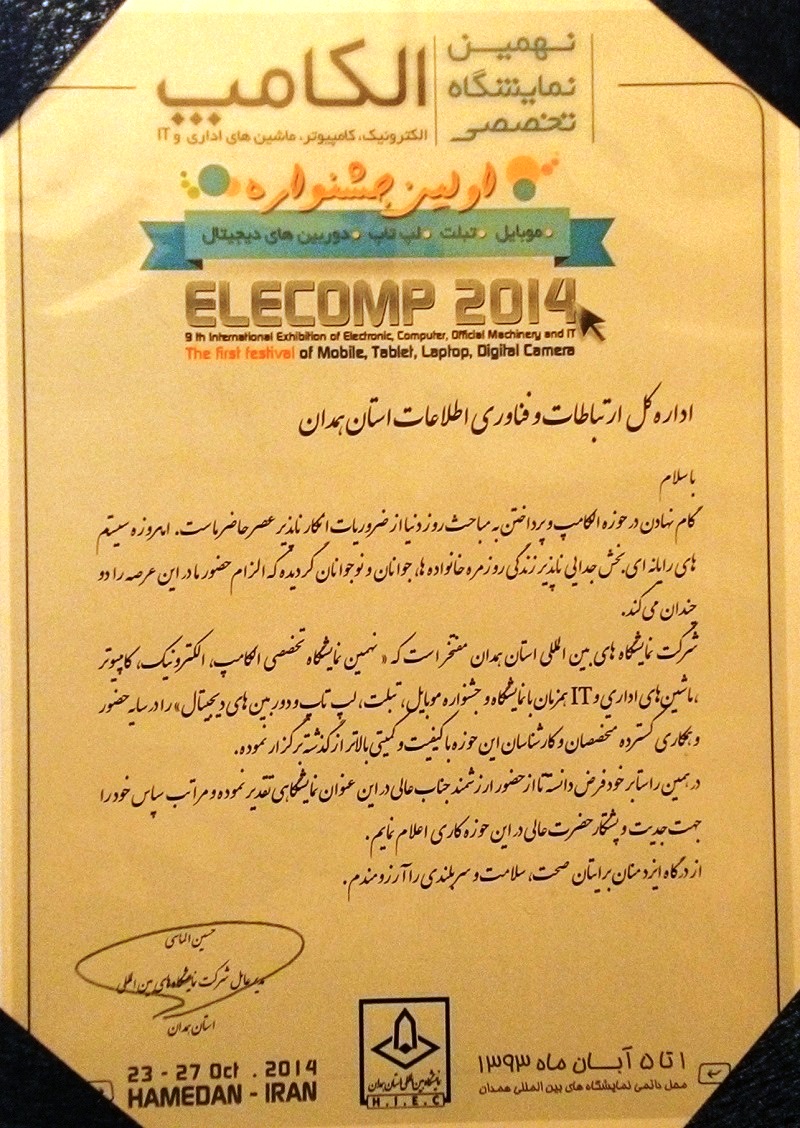 نهمین
نمایشگاه
تخصصی
الکامپ
الکترونیک، کامپیوتر، ماشین های اداری و IT
اولین جشنواره
• موبایل • تبلت • لپ تاپ • دوربین های دیجیتال
ELECOMP 2014
9 th International Exhibition of Electronic, Computer, Official Machinery and IT
The first festival of Mobile, Tablet, Laptop, Digital Camera
اداره کل ارتباطات و فناوری اطلاعات استان همدان
با سلام
گام نهادن در حوزه الکامپ و پرداختن به مباحث روز دنیا از ضروریات انکار ناپذیر عصر حاضر ماست. امروزه سیستم
های رایانه ای بخش جدایی ناپذیر زندگی روزمره خانواده ها، جوانان و نوجوانان گردیده که الزام حضور ما در این عرصه را دو
چندان می کند.
شرکت نمایشگاه های بین المللی استان همدان مفتخر است که « نهمین نمایشگاه تخصصی الکامپ، الکترونیک، کامپیوتر
،ماشین های اداری و IT همزمان با نمایشگاه و جشنواره موبایل، تبلت، لپ تاپ و دوربین های دیجیتال» را در سایه حضور
و همکاری گسترده متخصصان و کارشناسان این حوزه با کیفیت و کمیتی بالاتر از گذشته برگزار نموده.
در همین راستا بر خود فرض دانسته تا از حضور ارزشمند جناب عالی در این عنوان نمایشگاهی تقدیر نموده و مراتب سپاس خود را
جهت جدیت و پشتکار حضرت عالی در این حوزه کاری اعلام نمایم.
از درگاه ایزد منان برایتان صحت، سلامت و سربلندی را آرزومندم.
حسین الماسی
مدیر عامل شرکت نمایشگاه های بین المللی
استان همدان
23 - 27 Oct . 2014
HAMEDAN - IRAN
نمایشگاه بین المللی استان همدان
H.I.E.C
۱ تا ۵ آبان ماه ۱۳۹۳
محل دائمی نمایشگاه های بین المللی همدان